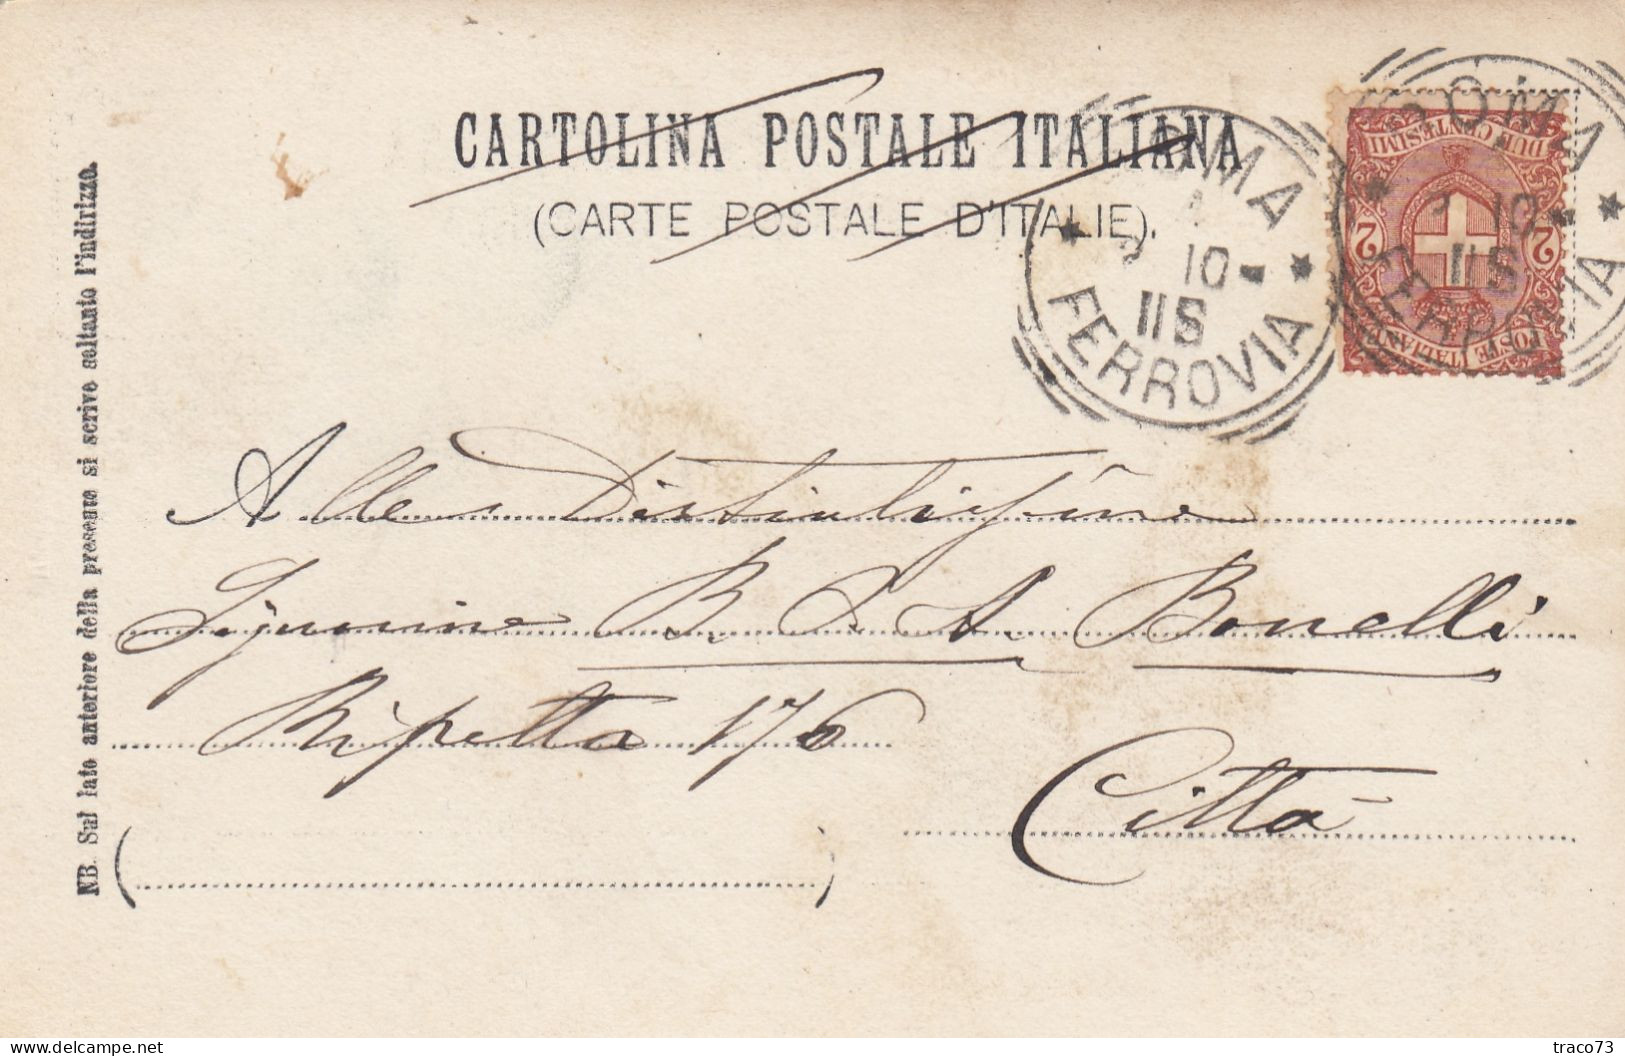 CARTOLINA POSTALE ITALIANA
(CARTE POSTALE D'ITALIE).
ROMA
10
11S
FERROVIA
ROMA
10
11S
FERROVIA
DUE CENTESIMI
2 2
POSTE ITALIANE
NB. Sul lato anteriore della presente si scrive soltanto l'indirizzo.
Alle Distintissime
Signorine B. E. A. Bonelli
Ripetta 176
Città
traco73